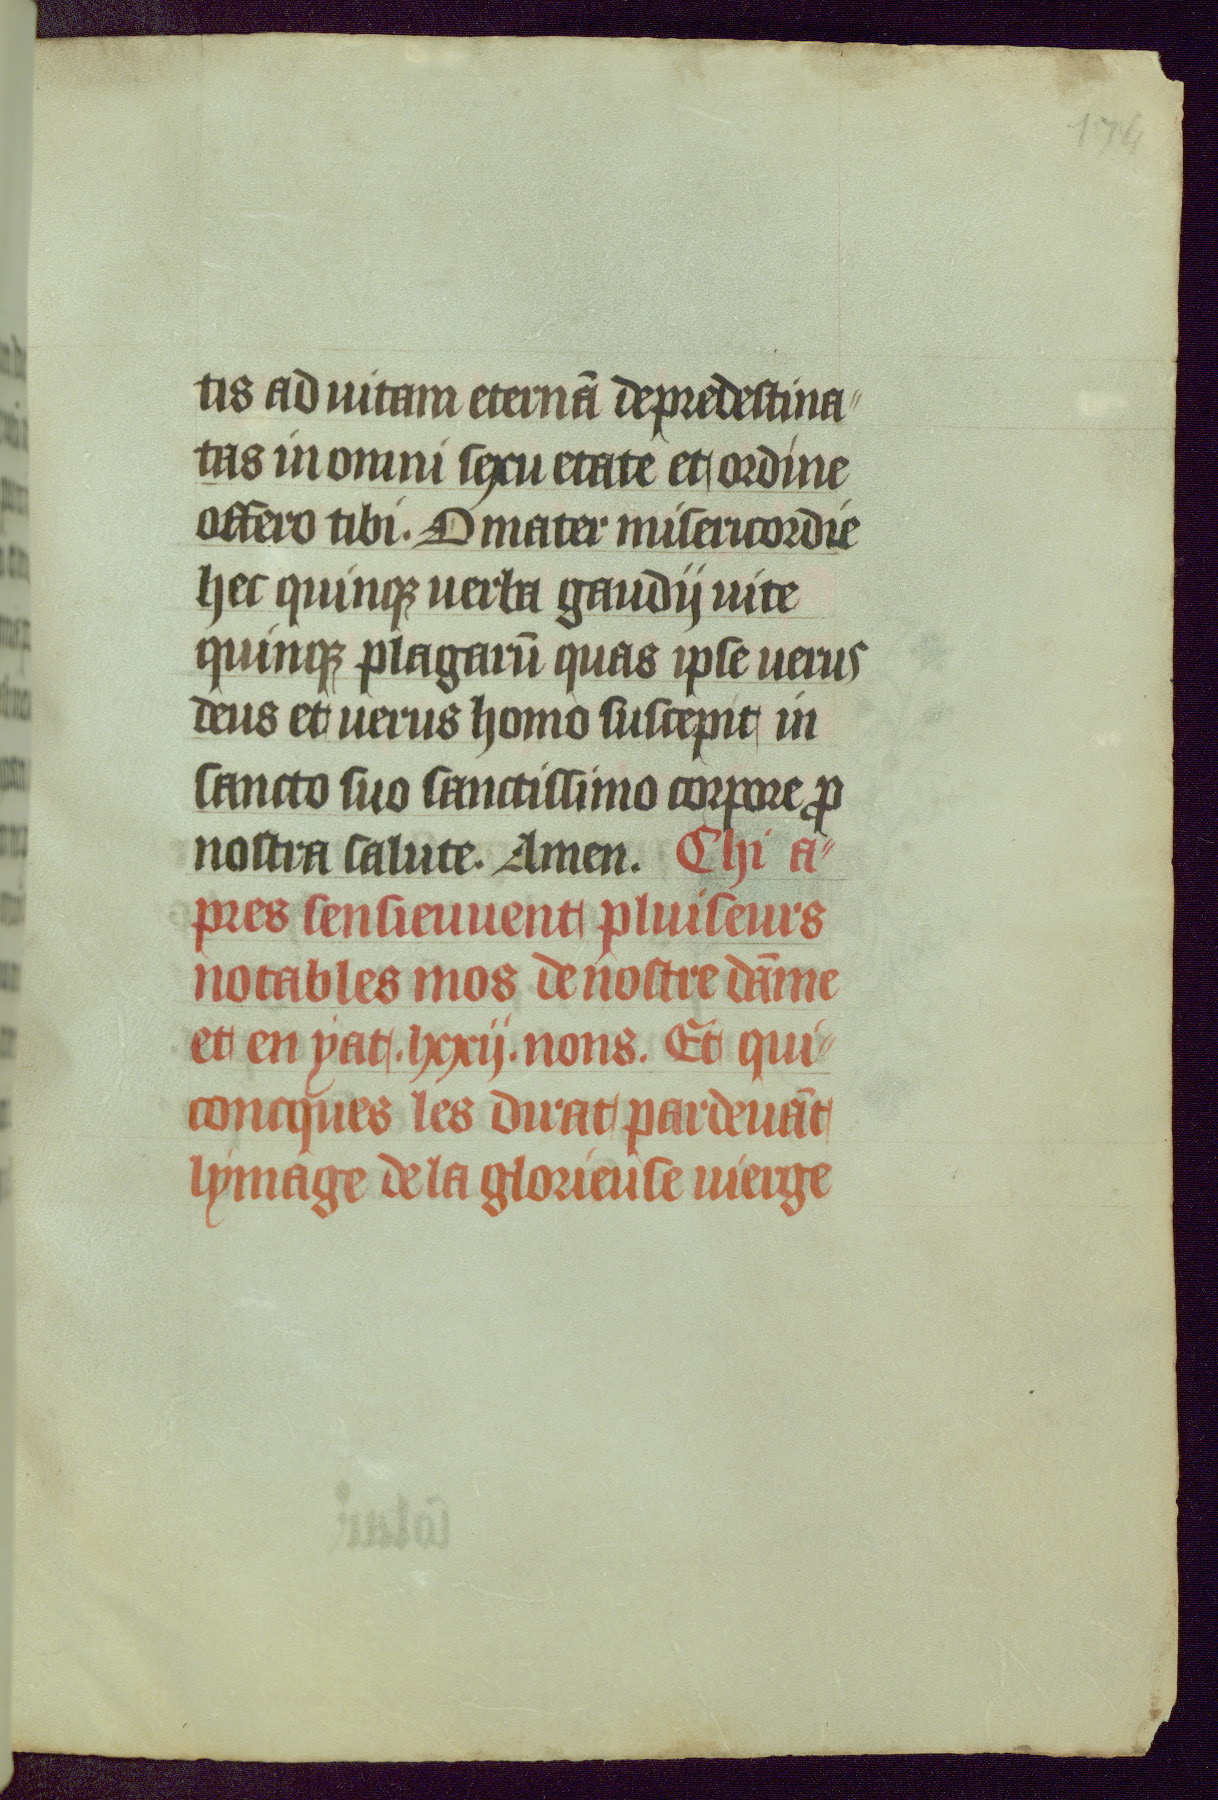 174
tis ad uitam eternā depredestina〃
tas in omni sexu etate et ordine
offero tibi. O mater misericordie
hec quinqꝫ uerba gaudij uite
quinqꝫ plagarū quas ipse uerus
deus et uerus homo suscepit in
sancto suo sanctissimo corpore ꝓ
nostra salute. Amen. Chi a〃
pres sensieuuent pluiseurs
notables mos de nostre dāme
et en y at .lxxij. nons. Et qui〃
concques les dirat par deuāt
lymage de la glorieuse uierge